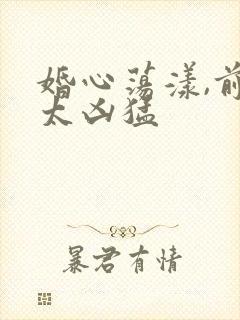 婚心荡漾,前
太凶猛
暴君有情